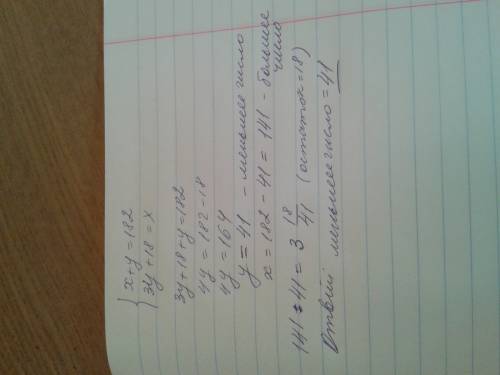 { x+y=182
3y+18=x
3y+18+y=182
4y=182-18
4y=164
y=41 - меньшее число
x=182-41=141 - большее число
141:41=3 18/41 (остаток=18)
Ответ: меньшее число=41